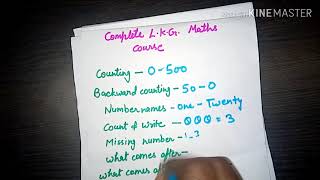 Complete L.K.G. Maths
course
Counting - 0-500
Backward counting - 50-0
Number names - one - Twenty
Count & write - 000 = 3
Missing number - 1-3
what comes after -
what comes
KINEMASTER